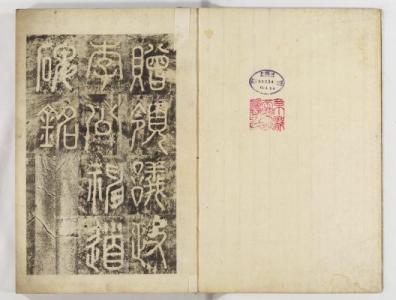 贈領議政
李公神道
碑銘